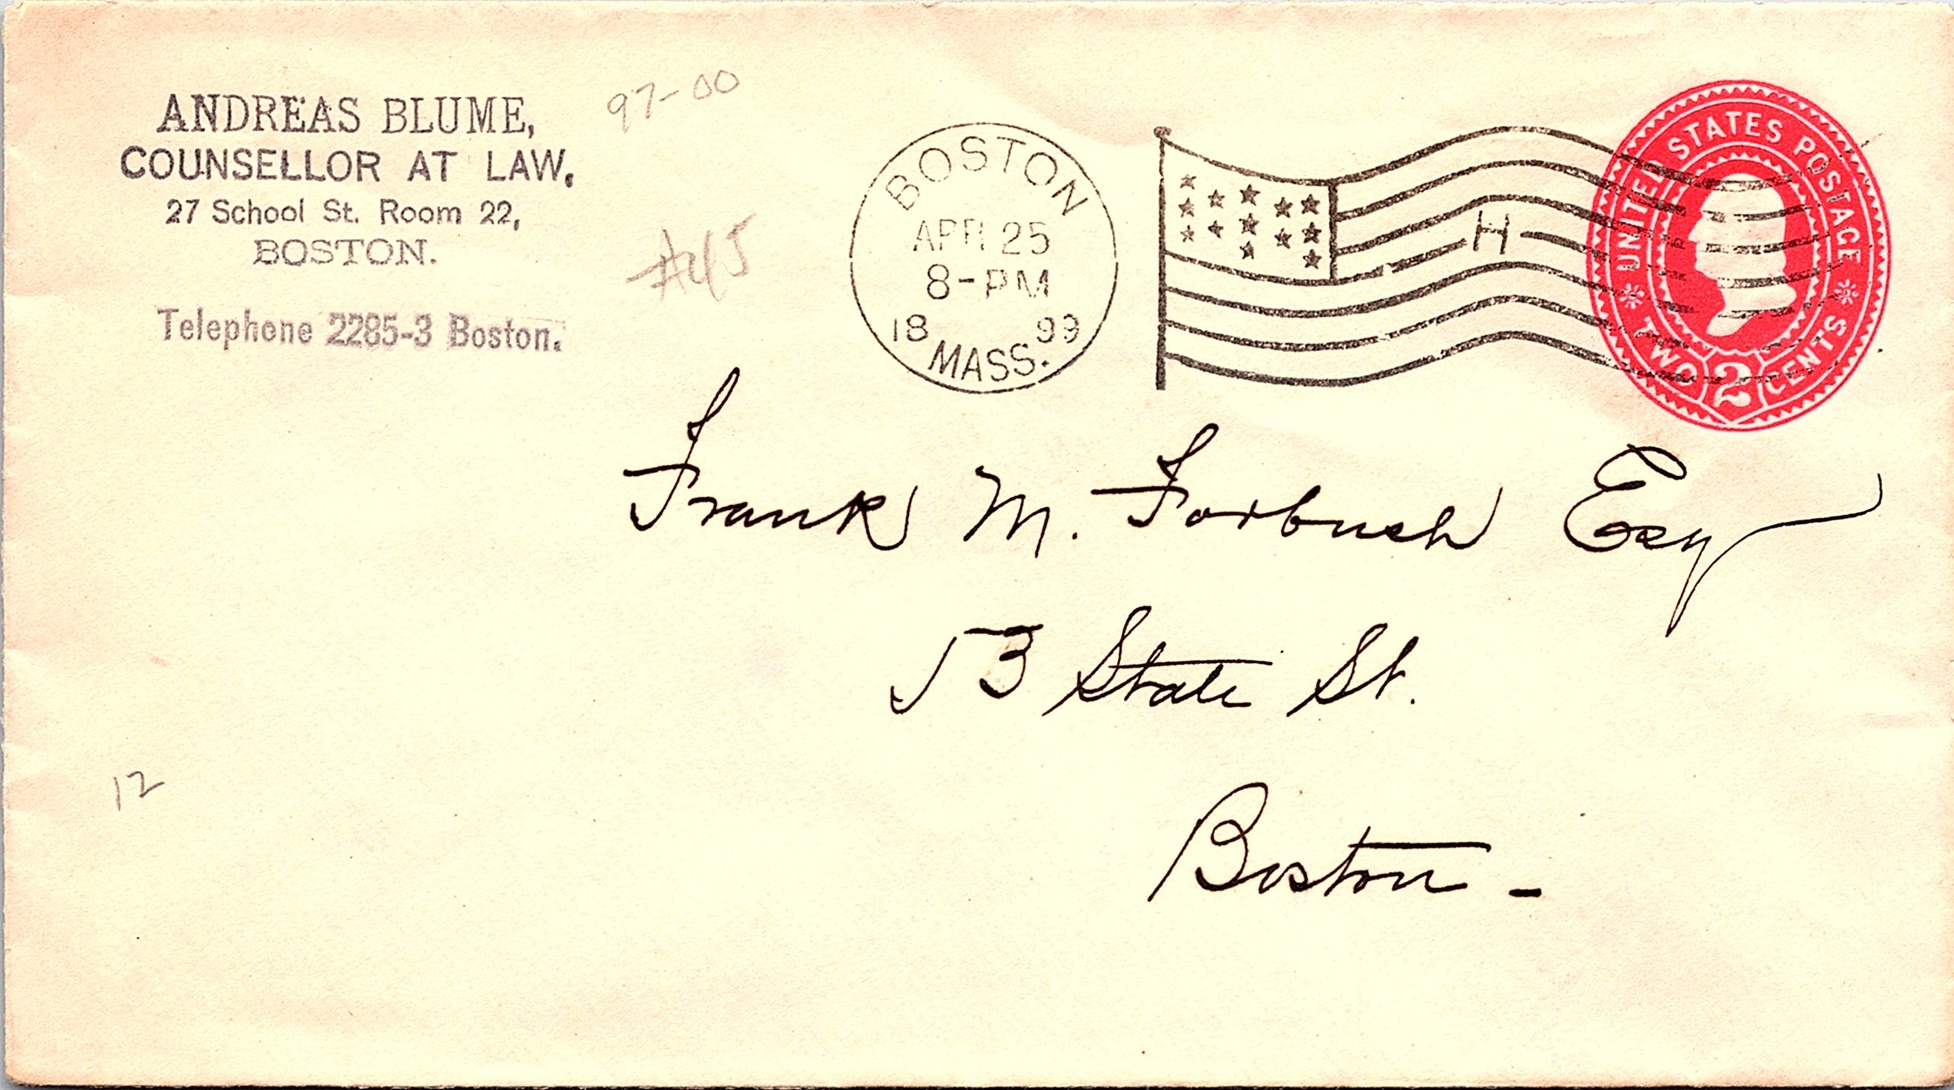 ANDREAS BLUME,
COUNSELLOR AT LAW.
27 School St. Room 22,
BOSTON.
Telephone 2285-3 Boston.
97-00
#45
BOSTON
APR 25
8-PM
18 99
MASS.
H
UNITED STATES POSTAGE
TWO 2 CENTS
Frank M. Forbush Esq
53 State St.
Boston -
12